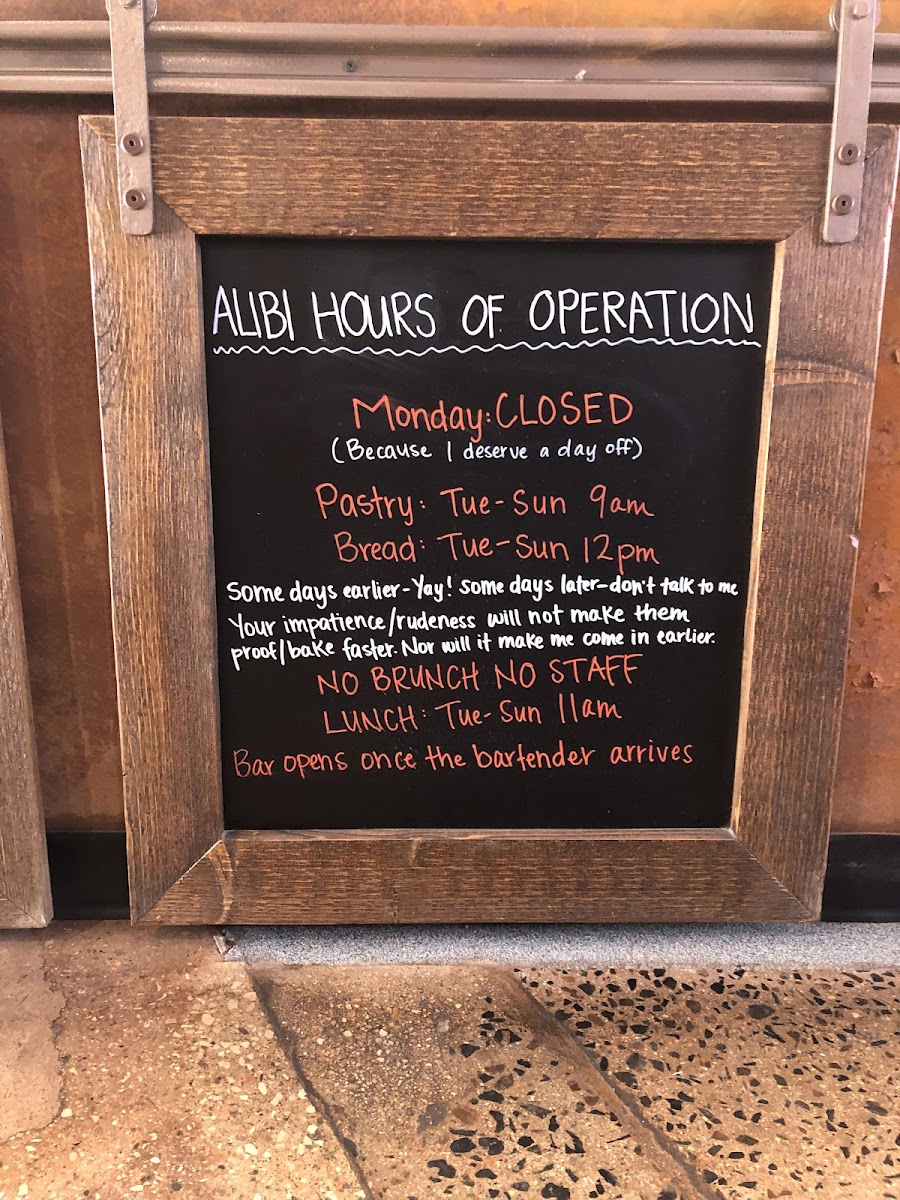 ALIBI HOURS OF OPERATION
Monday: CLOSED
(Because I deserve a day off)
Pastry: Tue-Sun 9am
Bread: Tue-Sun 12pm
Some days earlier-Yay! Some days later-don't talk to me
Your impatience/rudeness will not make them
proof/bake faster. Nor will it make me come in earlier.
NO BRUNCH NO STAFF
LUNCH: Tue-Sun 11am
Bar opens once the bartender arrives